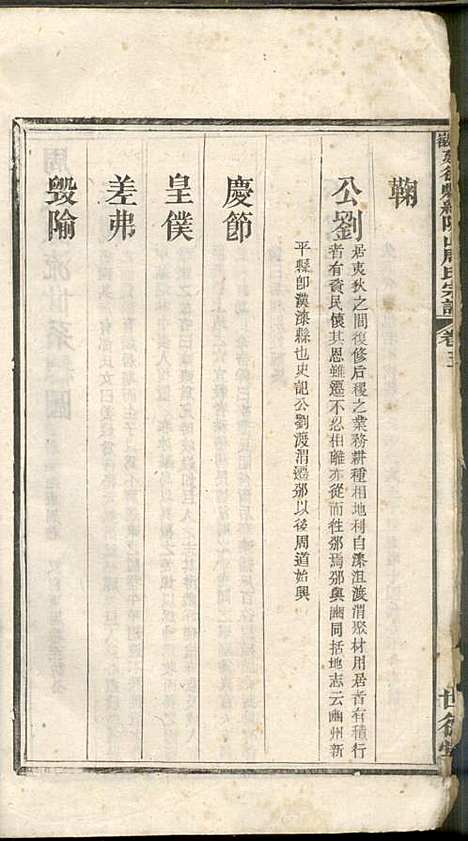 鞠
公劉
居夷狄之間復修后稷之業務耕種相地利自漆沮渡渭聚材用居者有積行
者有資民懷其恩雖遷不忍相離亦從而徃邠焉邠與豳同括地志云豳州新
平縣卽漢漆縣也史記公劉渡渭遷邠以後周道始興
慶節
皇僕
差弗
毁隃
周氏宗譜
卷五